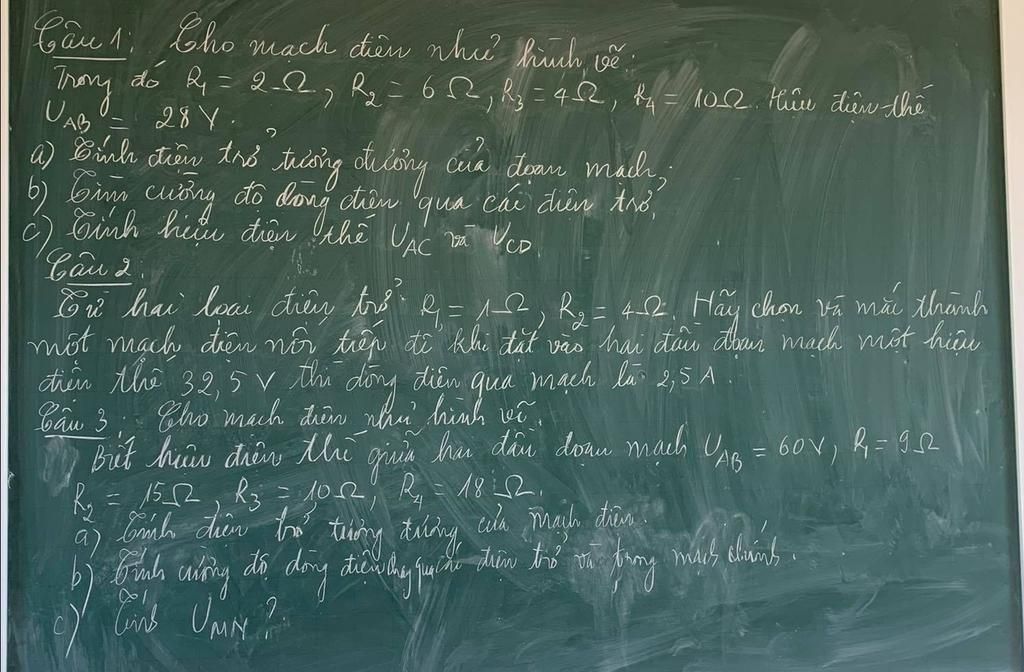 Câu 1: Cho mạch điện như hình vẽ:
Trong đó R₁ = 2Ω, R₂ = 6Ω, R₃ = 4Ω, R₄ = 10Ω. Hiệu điện thế
U_AB = 28V.
a) Tính điện trở tương đương của đoạn mạch.
b) Tìm cường độ dòng điện qua các điện trở.
c) Tính hiệu điện thế U_AC và U_CD
Câu 2.
Từ hai loại điện trở R₁ = 1Ω, R₂ = 4Ω. Hãy chọn và mắc thành
một mạch điện nối tiếp để khi đặt vào hai đầu đoạn mạch một hiệu
điện thế 32,5V thì dòng điện qua mạch là 2,5A.
Câu 3. Cho mạch điện như hình vẽ.
Biết hiệu điện thế giữa hai đầu đoạn mạch U_AB = 60V, R₁ = 9Ω
R₂ = 15Ω, R₃ = 10Ω, R₄ = 18Ω.
a) Tính điện trở tương đương của mạch điện.
b) Tính cường độ dòng điện chạy qua các điện trở và trong mạch chính.
c) Tính U_MN?